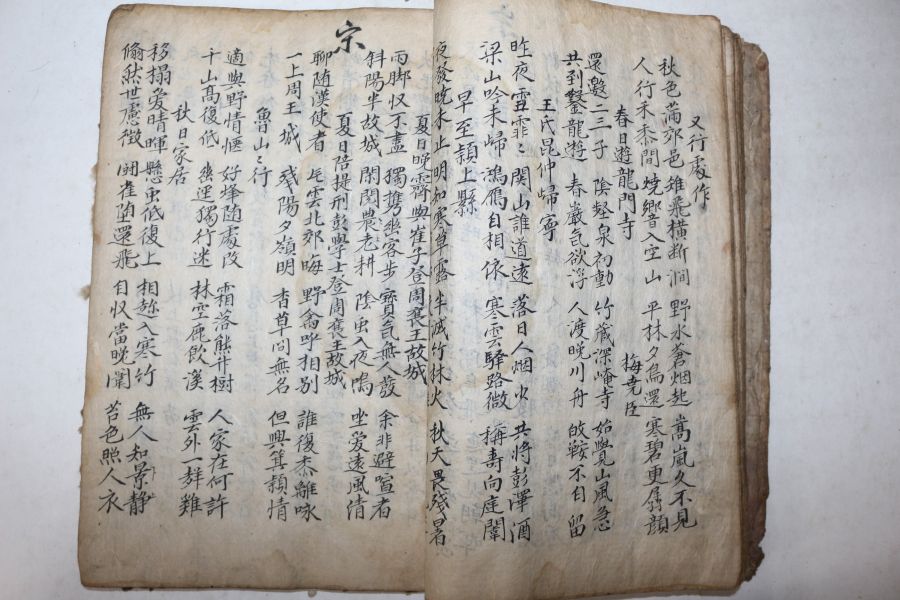 又行處作
秋色滿郊邑 雉飛橫斷澗 野水蒼烟起 嵩嵐久不見
人行禾黍間 燒響入空山 平林夕鳥還 寒碧更孱顔
春日遊龍門寺 梅堯臣
還邀二三子 陰壑泉初動 竹藏深崦寺 始覺山風急
共到鑿龍遊 春巖氣欲浮 人渡晚川舟 鞍不自留
王氏昆仲歸寧
昨夜雪霏〻 関山誰道遠 落日人烟火 共將彭澤酒
梁山吟未歸 鴻鴈自相依 寒雲驛路微 稱壽向庭闈
早至潁上縣
夜發曉未止 明知寒草露 半滅竹林火 秋天畏殘暑
宗
夏日晚霽與崔子登周襄王故城
雨脚收不盡 獨携幽客步 寶氣無人發 余非避喧者
斜陽半故城 閑閱農老耕 陰虫入夜鳴 坐愛遠風情
夏日陪提刑彭學士登周襄王故城
聊隨漢使者 雲北郊晦 野禽呼相別 誰復黍離咏
一上周王城 殘陽夕嶺明 杳草問無名 但興箕潁情
魯山〻行
適與野情愜 好峰隨處改 霜落熊升樹 人家在何許
千山高復低 幽逕獨行迷 林空鹿飲溪 雲外一聲雞
秋日家居
移榻愛晴暉 懸虫低復上 相趂入寒竹 無人知景静
翛然世慮微 鬪雀堕還飛 自收當晚闈 苔色照人衣